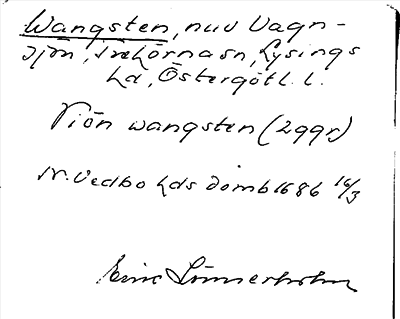 Wangsten, nuv Vagn-
sjön, Trehörna sn, Lysings
hd, Östergötl. l.
Siön wangsten (2 ggr)
N. Vedbo hds domb 1686 16/3
Eric Linnerholm